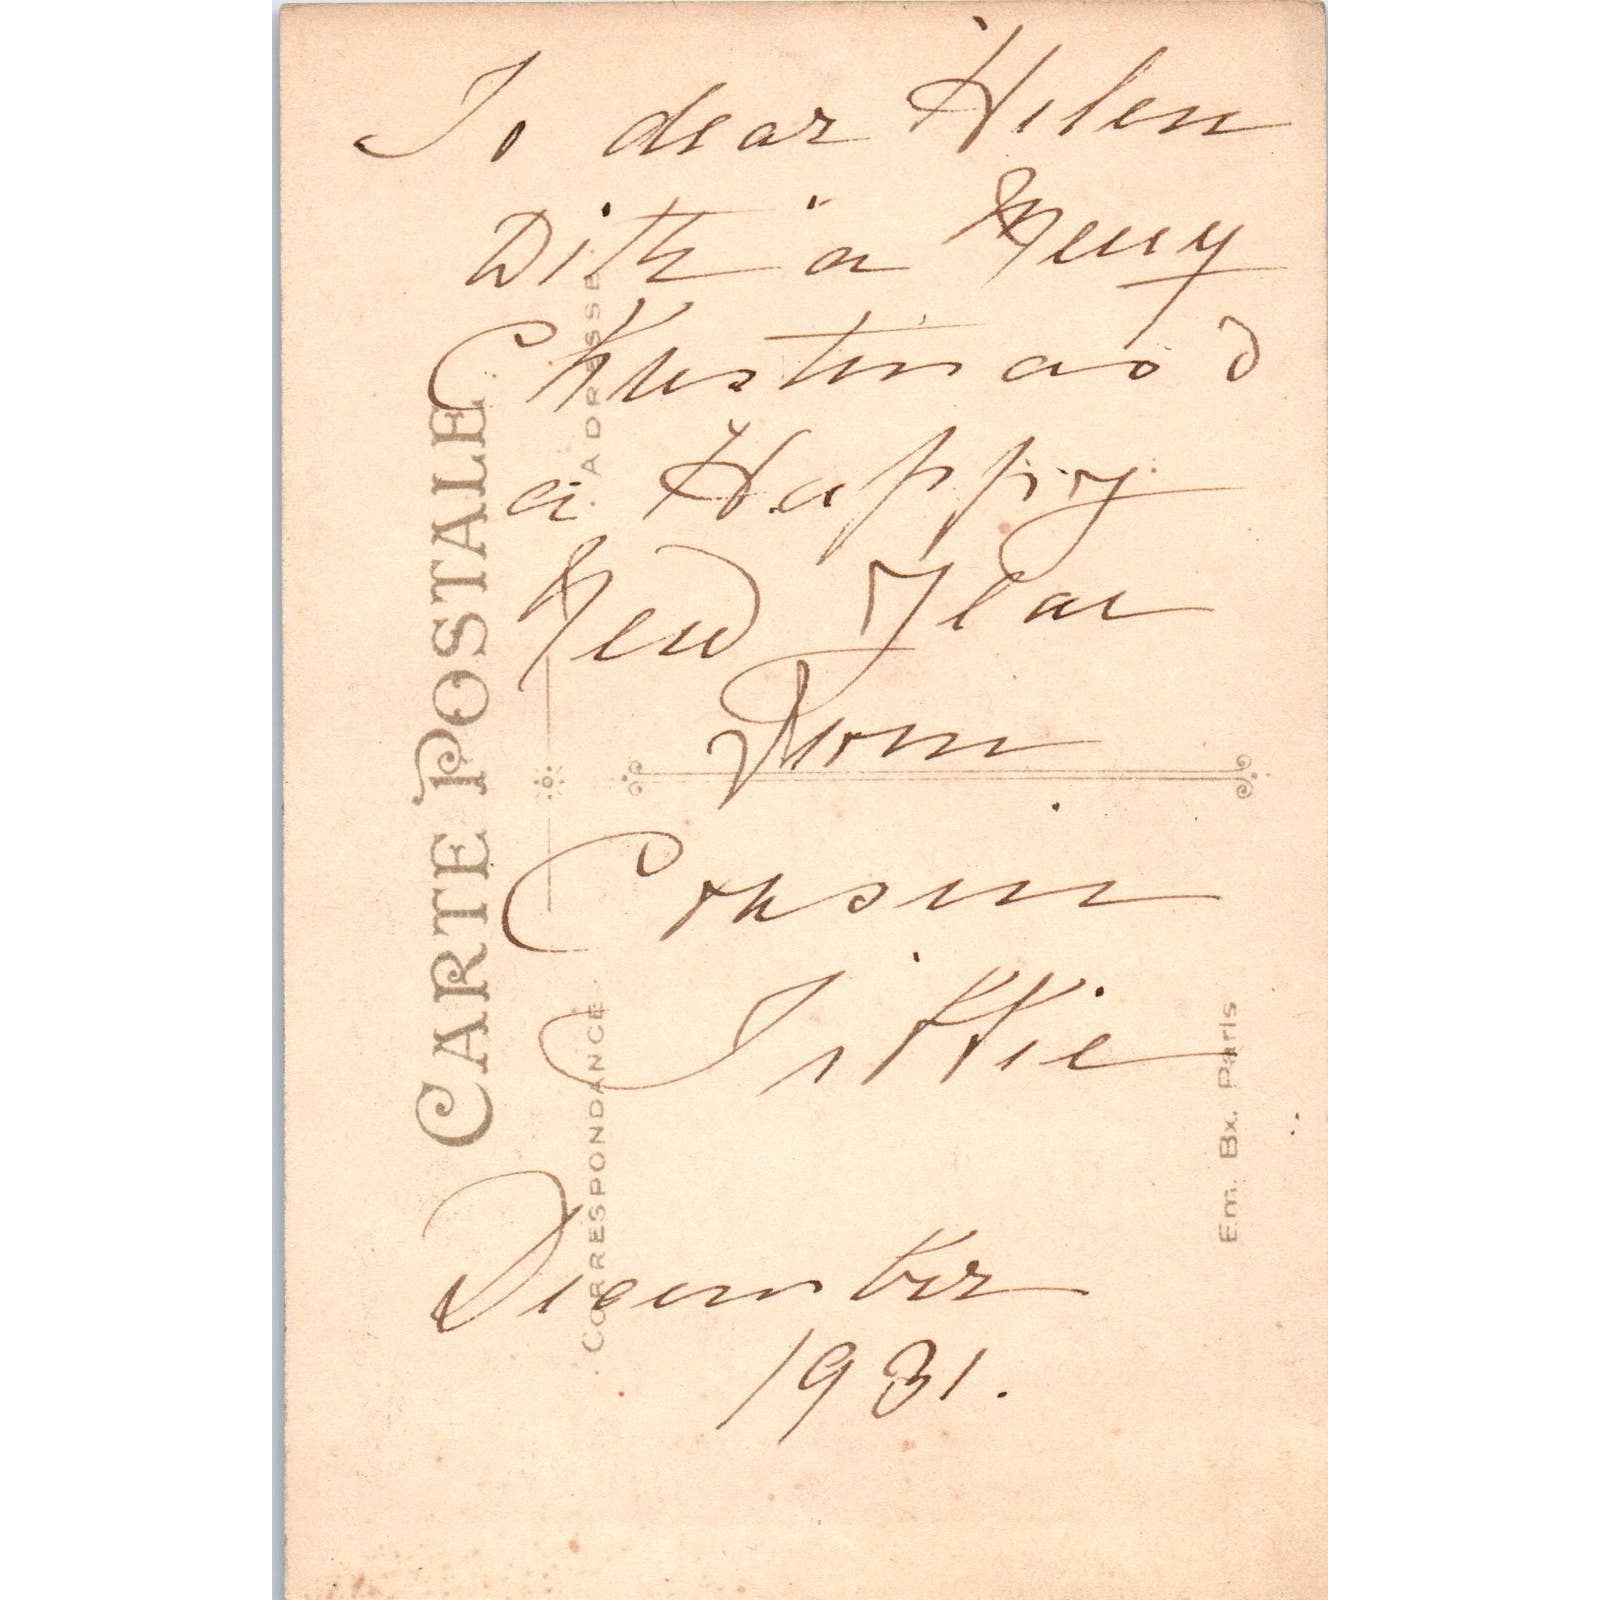 To dear Helen
With a Merry
Christmas &
a Happy
New Year
From
Cousin
Tittie
December
1931.
CARTE POSTALE
ADRESSE
CORRESPONDANCE
Em. Bx. Paris